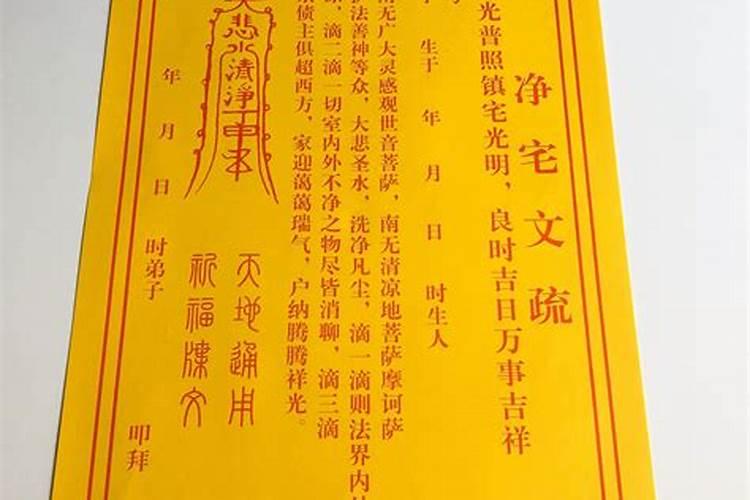 净宅文疏
光普照镇宅光明，良时吉日万事吉祥
生于 年 月 日 时生人
南无广大灵感观世音菩萨，南无清凉地菩萨摩诃萨
法善神等众，大悲圣水，洗净凡尘，滴一滴则法界内
滴二滴一切室内外不净之物尽皆消聊，滴三滴
债主俱超西方，家迎蔼蔼瑞气，户纳腾腾祥光。
悲水清淨
天地通用
祈福牒文
年 月 日 时弟子 叩拜